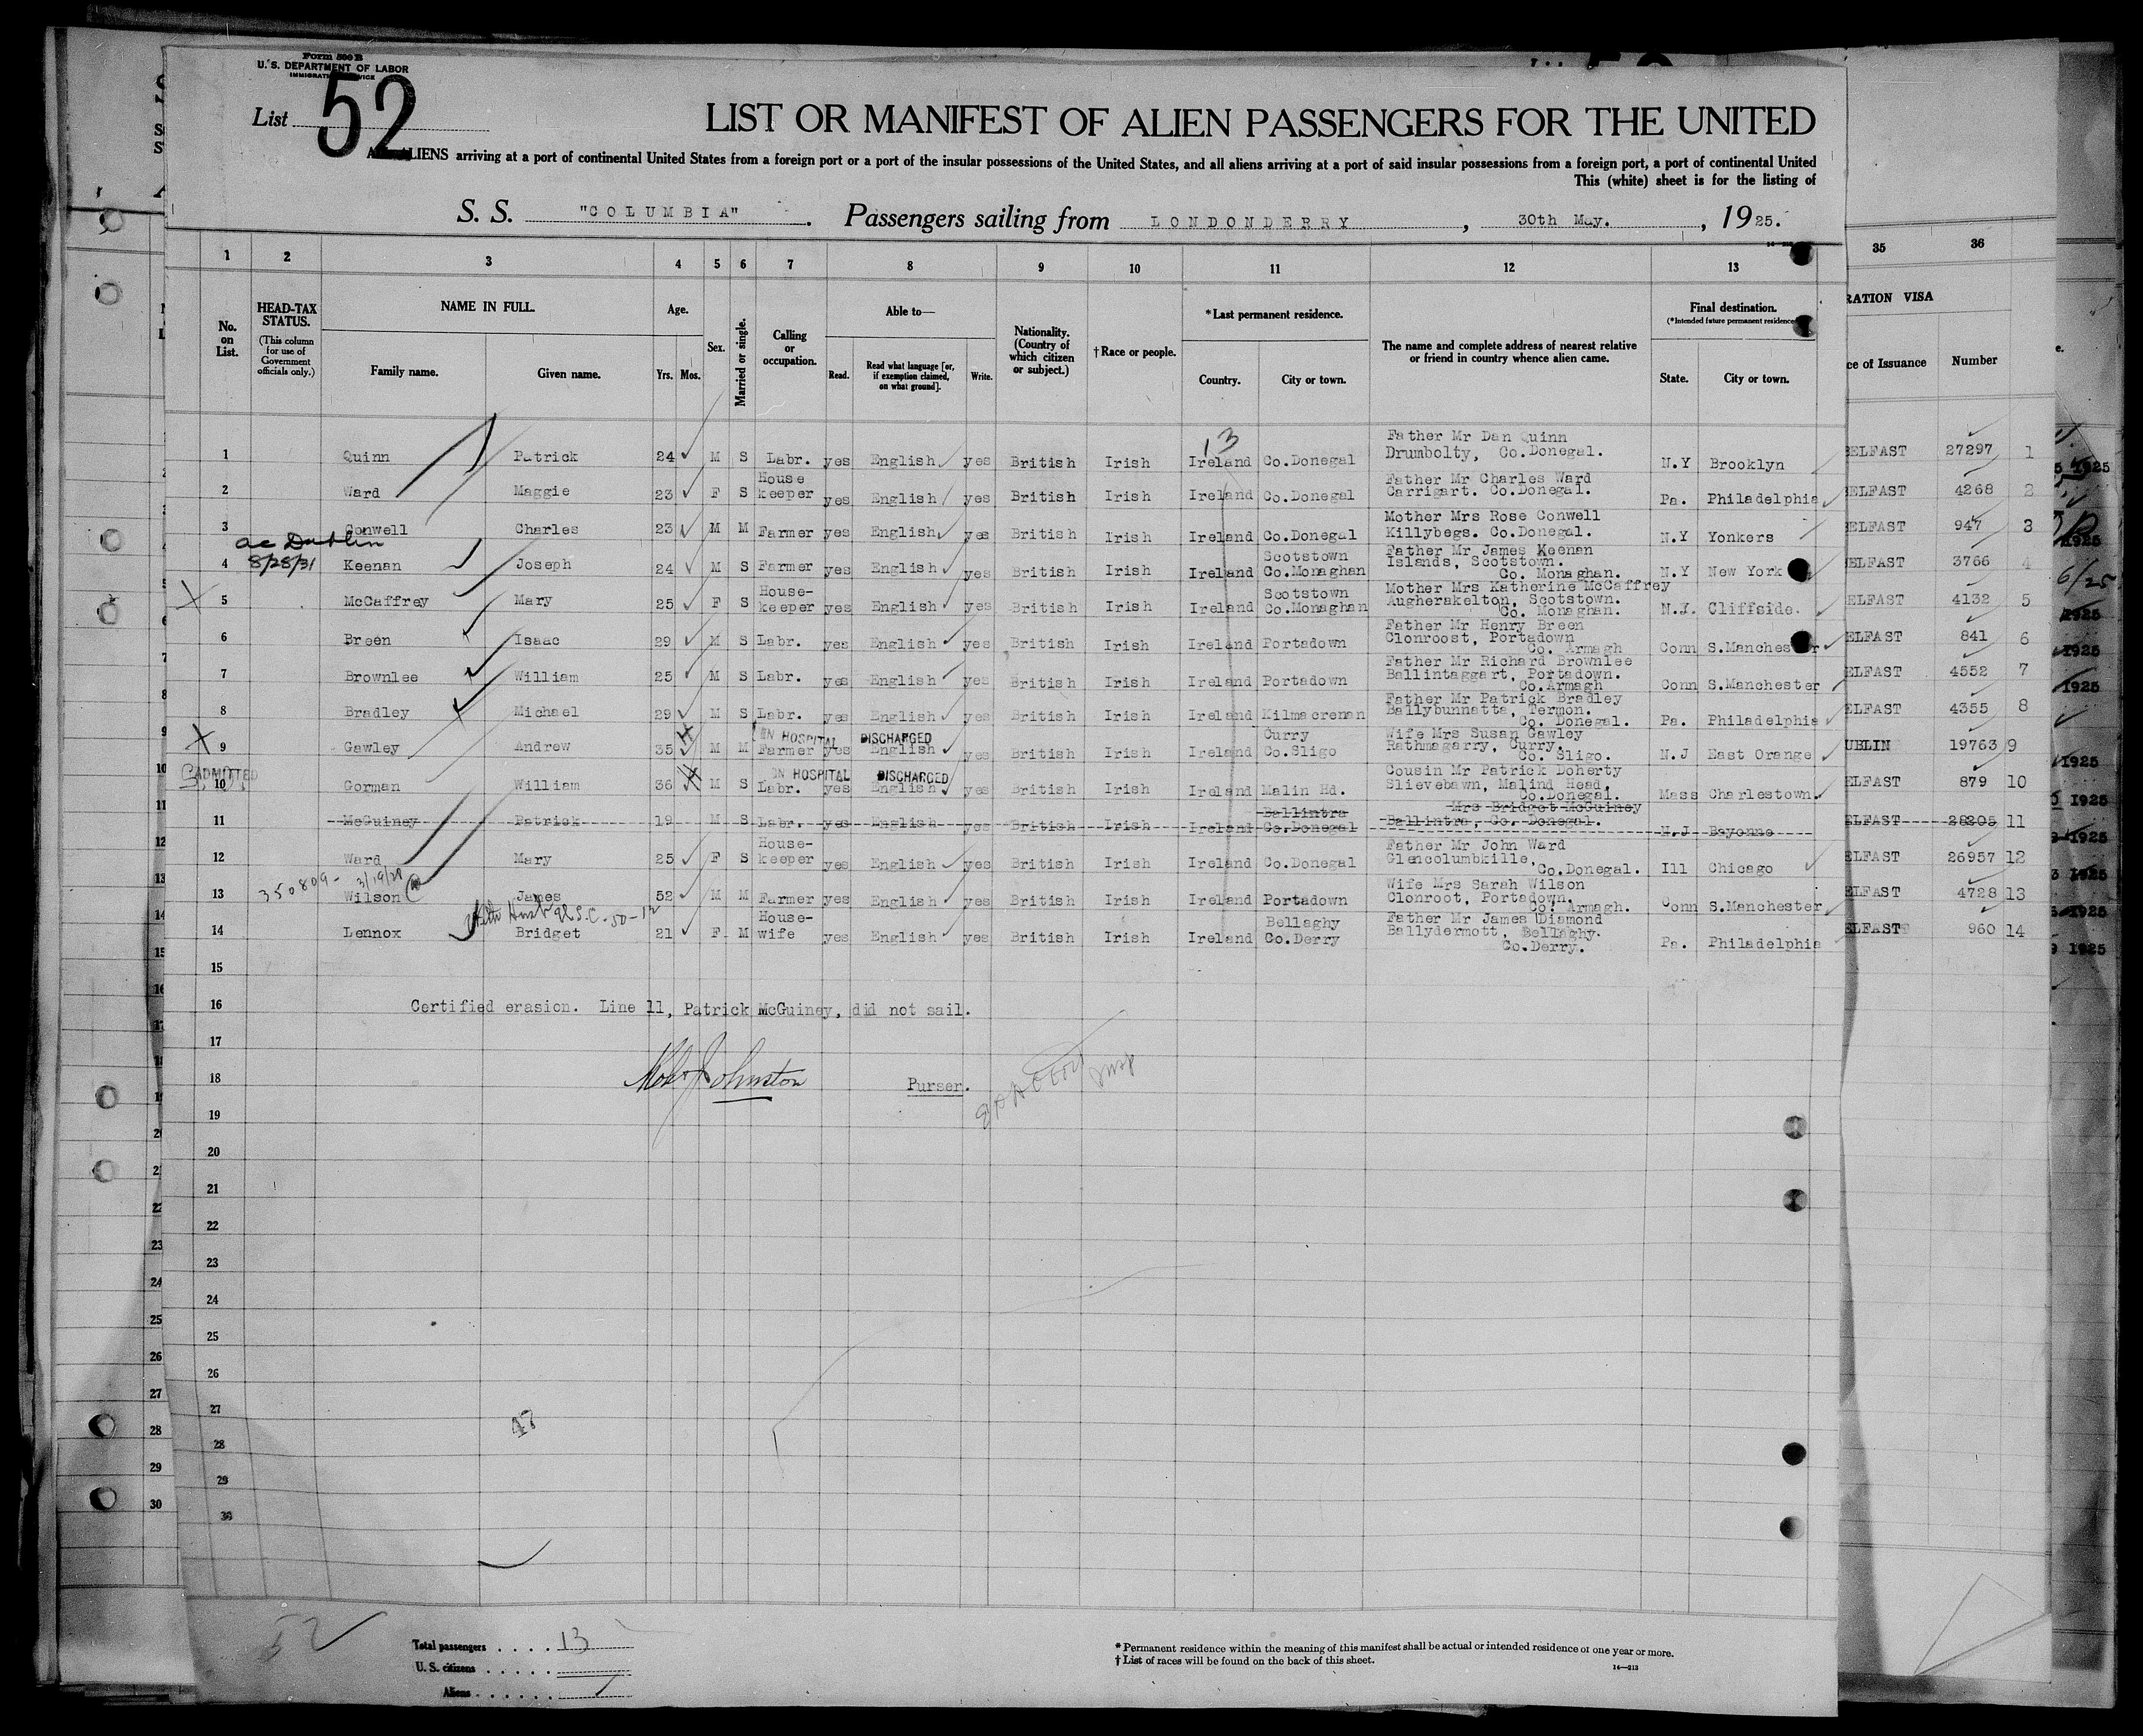 Form 500 B
U. S. DEPARTMENT OF LABOR
IMMIGRATION SERVICE
List 52
LIST OR MANIFEST OF ALIEN PASSENGERS FOR THE UNITED
ALIENS arriving at a port of continental United States from a foreign port or a port of the insular possessions of the United States, and all aliens arriving at a port of said insular possessions from a foreign port, a port of continental United
This (white) sheet is for the listing of
S. S. "COLUMBIA" . Passengers sailing from LONDONDERRY , 30th May. , 1925.
1 2 3 4 5 6 7 8 9 10 11 12 13 35 36
No. on List. HEAD-TAX STATUS. (This column for use of Government officials only.) NAME IN FULL. Family name. Given name. Age. Yrs. Mos. Sex. Married or single. Calling or occupation. Able to— Read. Read what language [or, if exemption claimed, on what ground]. Write. Nationality. (Country of which citizen or subject.) † Race or people. * Last permanent residence. Country. City or town. The name and complete address of nearest relative or friend in country whence alien came. Final destination. (*Intended future permanent residence) State. City or town.
RATION VISA
ce of Issuance Number
13
1 Quinn Patrick 24 M S Labr. yes English yes British Irish Ireland Co.Donegal Father Mr Dan Quinn Drumbolty, Co.Donegal. N.Y Brooklyn BELFAST 27297 1
2 Ward Maggie 23 F S House keeper yes English yes British Irish Ireland Co.Donegal Father Mr Charles Ward Carrigart. Co.Donegal. Pa. Philadelphia ELFAST 4268 2
3 Conwell Charles 23 M M Farmer yes English yes British Irish Ireland Co.Donegal Mother Mrs Rose Conwell Killybegs. Co.Donegal. N.Y Yonkers ELFAST 947 3
ac Dublin
8/28/31
4 Keenan Joseph 24 M S Farmer yes English yes British Irish Ireland Scotstown Co.Monaghan Father Mr James Keenan Islands, Scotstown. Co. Monaghan. N.Y New York ELFAST 3766 4
5 McCaffrey Mary 25 F S House-keeper yes English yes British Irish Ireland Scotstown Co.Monaghan Mother Mrs Katherine McCaffrey Augherakelton, Scotstown. Co. Monaghan. N.Y. Cliffside. ELFAST 4132 5
6 Breen Isaac 29 M S Labr. yes English yes British Irish Ireland Portadown Father Mr Henry Breen Clonroost, Portadown Co. Armagh Conn S.Manchester ELFAST 841 6
7 Brownlee William 25 M S Labr. yes English yes British Irish Ireland Portadown Father Mr Richard Brownlee Ballintaggart, Portadown. Co.Armagh Conn S.Manchester ELFAST 4552 7
8 Bradley Michael 29 M S Labr. yes English yes British Irish Ireland Kilmacrenan Father Mr Patrick Bradley Ballybunnatta, Termon. Co. Donegal. Pa. Philadelphia ELFAST 4355 8
IN HOSPITAL DISCHARGED
9 Gawley Andrew 35 M M Farmer yes English yes British Irish Ireland Curry Co.Sligo Wife Mrs Susan Gawley Rathmagarry, Curry, Co. Sligo. N.J East Orange UBLIN 19763 9
ADMITTED
IN HOSPITAL DISCHARGED
10 Gorman William 36 M S Labr. yes English yes British Irish Ireland Malin Hd. Cousin Mr Patrick Doherty Slievebawn, Malind Head, Co.Donegal. Mass Charlestown. ELFAST 879 10
11 McGuiney Patrick 19 M S Labr. yes English yes British Irish Ireland Ballintra Co.Donegal Mrs Bridget McGuiney Ballintra, Co. Donegal. N.J Bayonne ELFAST 28205 11
12 Ward Mary 25 F S House-keeper yes English yes British Irish Ireland Co.Donegal Father Mr John Ward Glencolumbkille, Co.Donegal. Ill Chicago ELFAST 26957 12
350809- 3/19/28
13 Wilson James 52 M M Farmer yes English yes British Irish Ireland Portadown Wife Mrs Sarah Wilson Clonroot, Portadown. Co. Armagh. Conn S.Manchester ELFAST 4728 13
14 Lennox Bridget 21 F M House-wife yes English yes British Irish Ireland Bellaghy Co.Derry Father Mr James Diamond Ballydermott, Bellaghy. Co.Derry. Pa. Philadelphia ELFAST 960 14
15
16 Certified erasion. Line 11, Patrick McGuiney, did not sail.
17
18 Johnston Purser.
19
20
21
22
23
24
25
26
27
28
29
30
47
52
Total passengers . . . . 13
U. S. citizens . . . . .
Aliens . . . . . .
* Permanent residence within the meaning of this manifest shall be actual or intended residence of one year or more.
† List of races will be found on the back of this sheet.
14—213